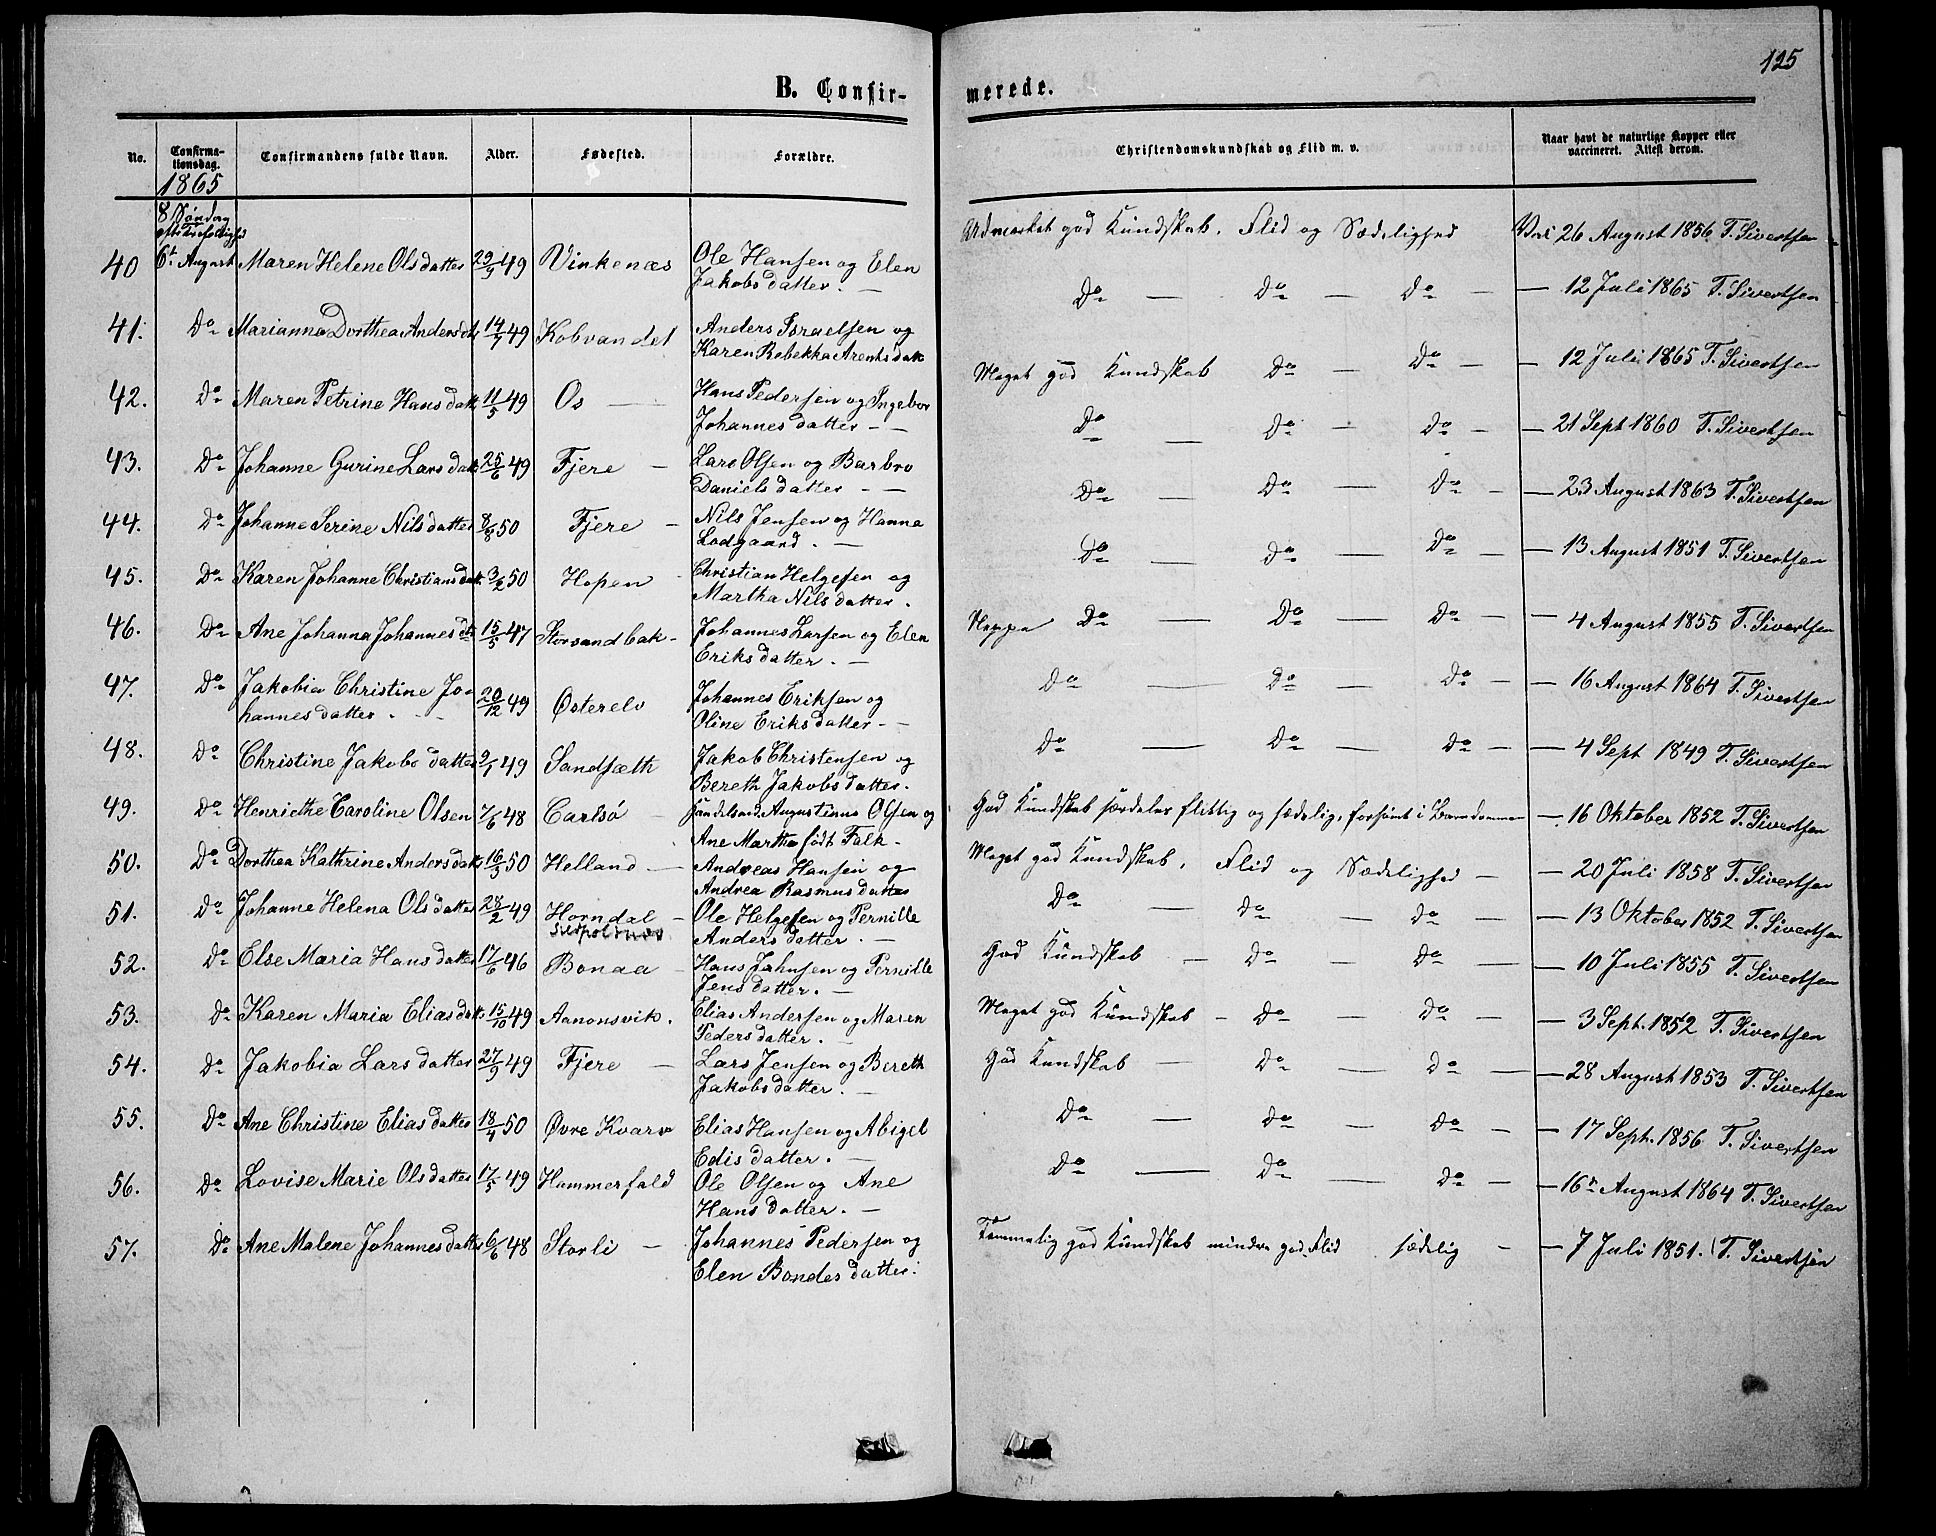 125
B. Confir-
merede.
No.
Confirma-
tionsdag.
Confirmandens fulde Navn.
Alder.
Fødested.
Forældre.
Christendomskundskab og Flid m. v.
Naar havt de naturlige Kopper eller
vaccineret. Attest derom.
1865
8 Søndag
efter Trefoldighd
40 6te August Maren Helene Olsdatter 29/9 49 Vinkenæs Ole Hansen og Elen
Jakobsdatter. —
Udmærket god Kundskab, Flid og Sædelighed Vac 26 August 1856 T. Sivertsen
41. Do Marianna Dorthea Andersdat 14/7 49 Kobvandet Anders Israelsen og
Karen Rebekka Arentsdat
Do — Do — Do — — 12 Juli 1865 T. Sivertsen
42. Do Maren Petrine Hansdatt 11/5 49 Os — Hans Pedersen og Ingebor
Johannesdatter — —
Meget god Kundskab Do — Do — — 12 Juli 1865 T. Sivertsen
43. Do Johanne Gurine Larsdat 25/6 49 Fjere — Lars Olsen og Barbro
Danielsdatter — —
Do — Do — Do — — 21 Sept 1860 T. Sivertsen
44. Do Johanne Serine Nilsdatter 8/8 50 Fjere — Nils Jensen og Hanna
Lodgaard. —
Do — Do — Do — — 23 August 1863 T. Sivertsen
45. Do Karen Johanne Christiansdat 3/2 50 Hopen — Christian Helgesen og
Martha Nilsdatter.
Do — Do — Do — — 13 August 1851 T. Sivertsen
46. Do Ane Johanna Johannesdt 15/5 47 Storsandbak - Johannes Larsen og Elen
Eriksdatter. —
Do — Do — Do — — 4 August 1855 T. Sivertsen
47. Do Jakobia Christine Jo-
hannesdatter. - - 20/12 49 Østerelv Johannes Eriksen og
Oline Eriksdatter — -
Do — Do — Do — — 16 August 1864 T. Sivertsen
48. Do Christine Jakobsdatter 9/1 49 Sandsæth Jakob Christensen og
Bereth Jakobsdatter.
Do — Do — Do — — 4 Sept 1849 T. Sivertsen
49. Do Henriethe Caroline Olsen 7/6 48 Carlsö — Handelsmd. Augustinus Olsen og
Ane Martha født Falk -
God Kundskab særdeles flittig og sædelig, forsømt i Barndommen — 16 Oktober 1852 T. Sivertsen
50. Do Dorthea Kathrine Andersdatt 16/3 50 Helland — Andreas Hansen og
Andrea Rasmusdatter
Meget god Kundskab, Flid og Sædelighed — — 20 Juli 1858 T. Sivertsen
51. Do Johanne Helena Olsdatter 28/2 49 Horndal — Ole Helgesen og Pernille
Andersdatter. —
Do — Do — Do — — 13 Oktober 1852 T. Sivertsen
52. Do Else Maria Hansdatter 17/6 46 Bonaa — Hans Jahnsen og Pernille
Jensdatter. —
God Kundskab — Do — Do — — 10 Juli 1855 T. Sivertsen
53. Do Karen Maria Eliasdatt 15/10 49 Aanonsvik. Elias Andersen og Maren
Pedersdatter. —
Meget god Kundskab — Do — Do — — 3 Sept. 1852 T. Sivertsen
54. Do Jakobia Larsdatter 27/9 49 Fjere — Lars Jensen og Bereth
Jakobsdatter. —
God Kundskab — Do — Do — — 28 August 1853 T. Sivertsen
55. Do Ane Christine Eliasdatter 18/4 50 Øvre Kvarv Elias Hansen og Abigel
Edisdatter. —
Do — Do — Do — — 17 Sept. 1856 T. Sivertsen
56. Do Lovise Marie Olsdatter 17/5 49 Hammerfald Ole Olsen og Ane
Hansdatter. —
Do — Do — Do — — 16de August 1864 T. Sivertsen
57. Do Ane Malene Johannesdatter 6/6 48 Storli — Johannes Pedersen og
Elen Bondesdatter.
Temmelig god Kundskab mindre god Flid sædelig — — 7 Juli 1851. T. Sivertsen